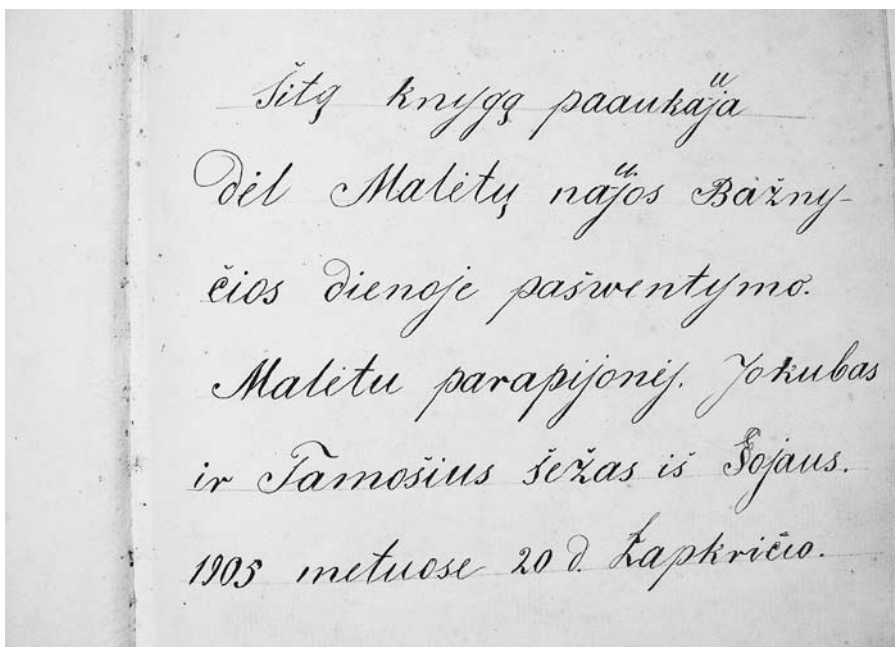 Šitą knygą paaukauja
dėl Malėtų naujos Bažny-
čios dienoje pašwentymo.
Malėtu parapijonėj. Jokubas
ir Tamošius Šežas iš
1905 metuose 20 d. Lapkričio.